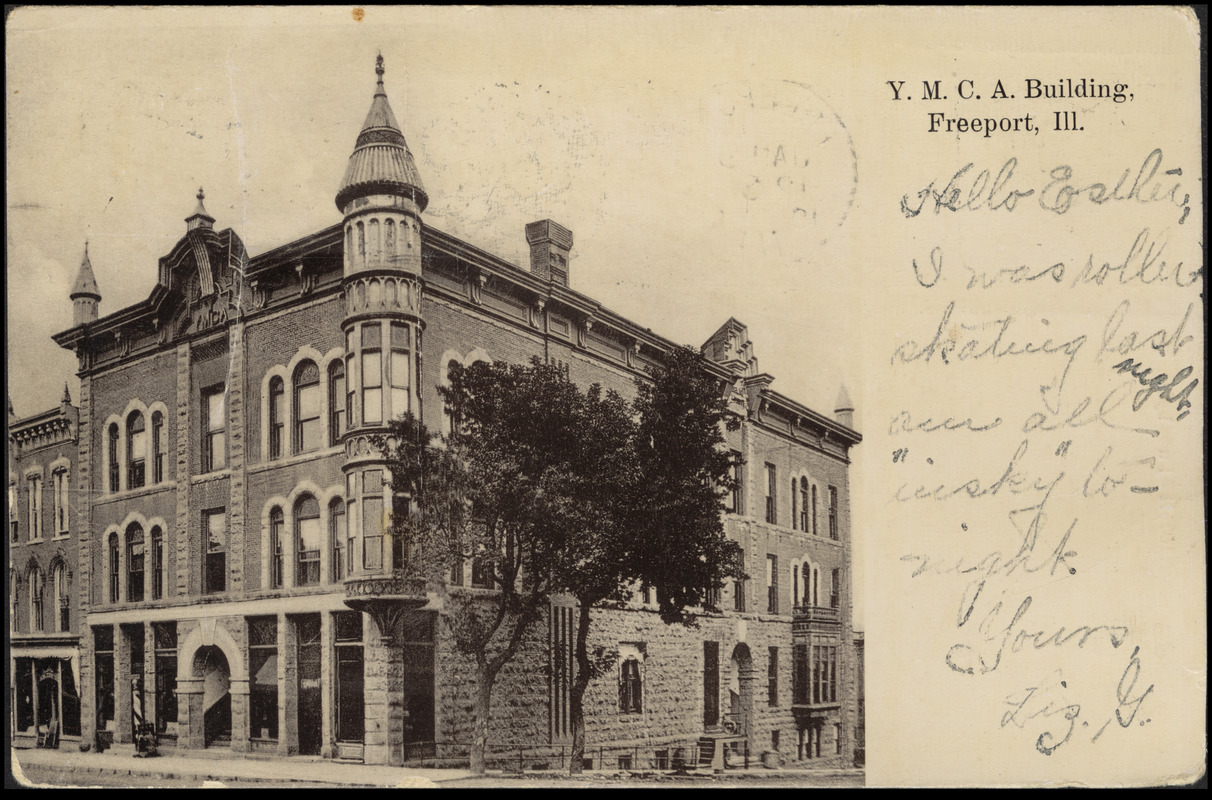 Y. M. C. A. Building,
Freeport, Ill.
Hello Esther,
I was roller
skating last
night,
am all
"insky" to=
night.
Yours,
Liz. G.
YMCA
JAN